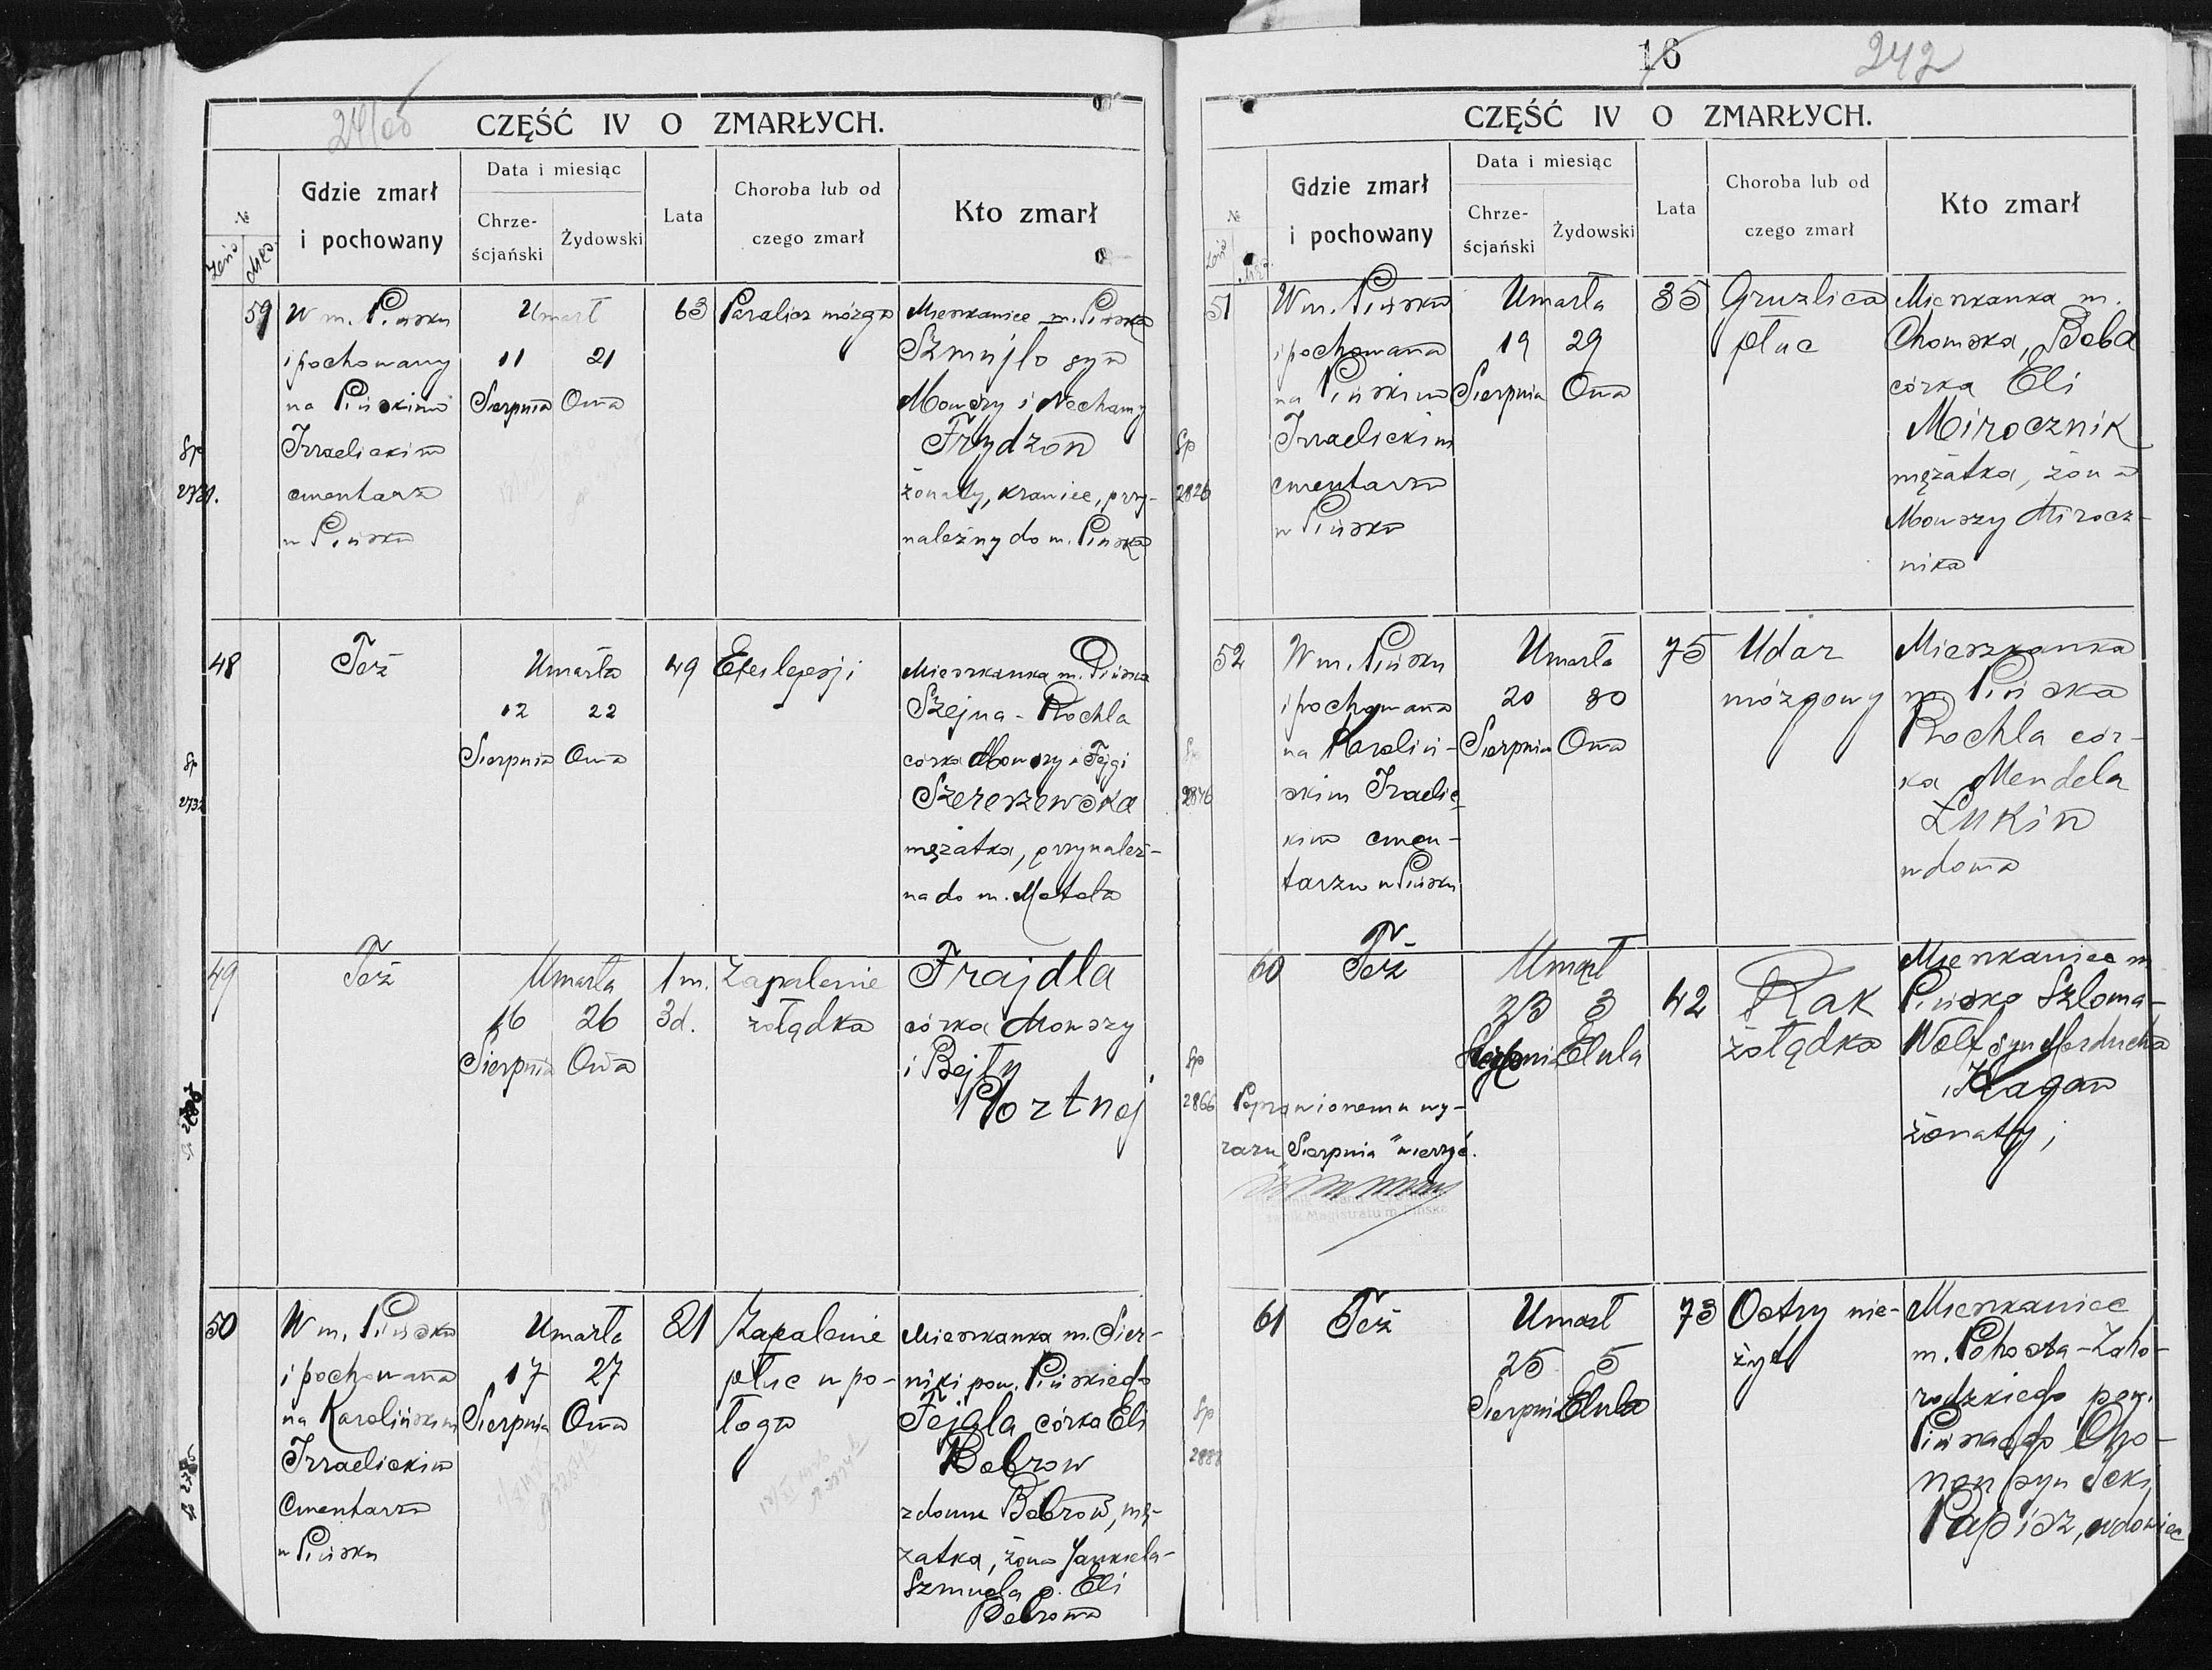 CZĘŚĆ IV O ZMARŁYCH.
№
Żeńs. Męs.
Gdzie zmarł
i pochowany
Data i miesiąc
Chrze-
ścjański
Żydowski
Lata
Choroba lub od
czego zmarł
Kto zmarł
59
W m. Pińsku
i pochowany
na Pińskim
Izraelickim
cmentarzu
w Pińsku
Umarł
11 21
Sierpnia Owa
63
Paraliż mózgu
Mieszkaniec m. Pińska
Szmujło syn
Mowszy i Nechamy
Frydzon
żonaty, krawiec, przy-
należny do m. Pińska
48
Też
Umarła
12 22
Sierpnia Owa
49
Mieszkanka m. Pińska
Szejna-Rochla
córka Mowszy i Fejgi
Szereszewska
mężatka, przynależ-
na do m. Motola
49
Też
Umarła
16 26
Sierpnia Owa
1 m.
3 d.
Zapalenie
żołądka
Frajdla
córka Mowszy
i Bejły
Portnoj
50
W m. Pińsku
i pochowana
na Karolińskim
Izraelickim
Cmentarzu
w Pińsku
Umarła
17 27
Sierpnia Owa
21
Zapalenie
płuc w po-
łogu
Mieszkanka m. Sier-
niki pow. Pińskiego
Fejgla córka Eli
Bobrow
z domu Bobrow, mę-
żatka, żona Jankiela-
Szmuela s. Eli
Bobrowa
16
242
CZĘŚĆ IV O ZMARŁYCH.
№
Gdzie zmarł
i pochowany
Data i miesiąc
Chrze-
ścjański
Żydowski
Lata
Choroba lub od
czego zmarł
Kto zmarł
51
W m. Pińsku
i pochowana
na Pińskim
Izraelickim
cmentarzu
w Pińsku
Umarła
19 29
Sierpnia Owa
35
Gruzlica
płuc
Mieszkanka m.
Chomska, Beba
córka Eli
Mirocznik
mężatka, żona
Mowszy Mirocz-
nika
Sp
2826
52
W m. Pińsku
i pochowana
na Karoliń-
skim Izraelic-
kim cmen-
tarzu w Pińsku
Umarła
20 30
Sierpnia Owa
75
Udar
mózgowy
Mieszkanka
m. Pińska
Rochla cór-
ka Mendela
Lukin
wdowa
2846
60
Też
Umarł
23 3
Sierpnia Elula
42
Rak
żołądka
Mieszkaniec m.
Pińska Szloma-
Wolf syn Morducha
Kagan
żonaty,
Sp
2866
Poprawionemu wy-
razu „Sierpnia" wierzyć.
Magistratu m. Pińska
61
Też
Umarł
25 5
Sierpnia Elula
73
Ostry nie-
żyt
Mieszkaniec
m. Pohosta-Zaho-
rodzkiego pow.
Pińskiego
Papisz, wdowiec
Sp
2888